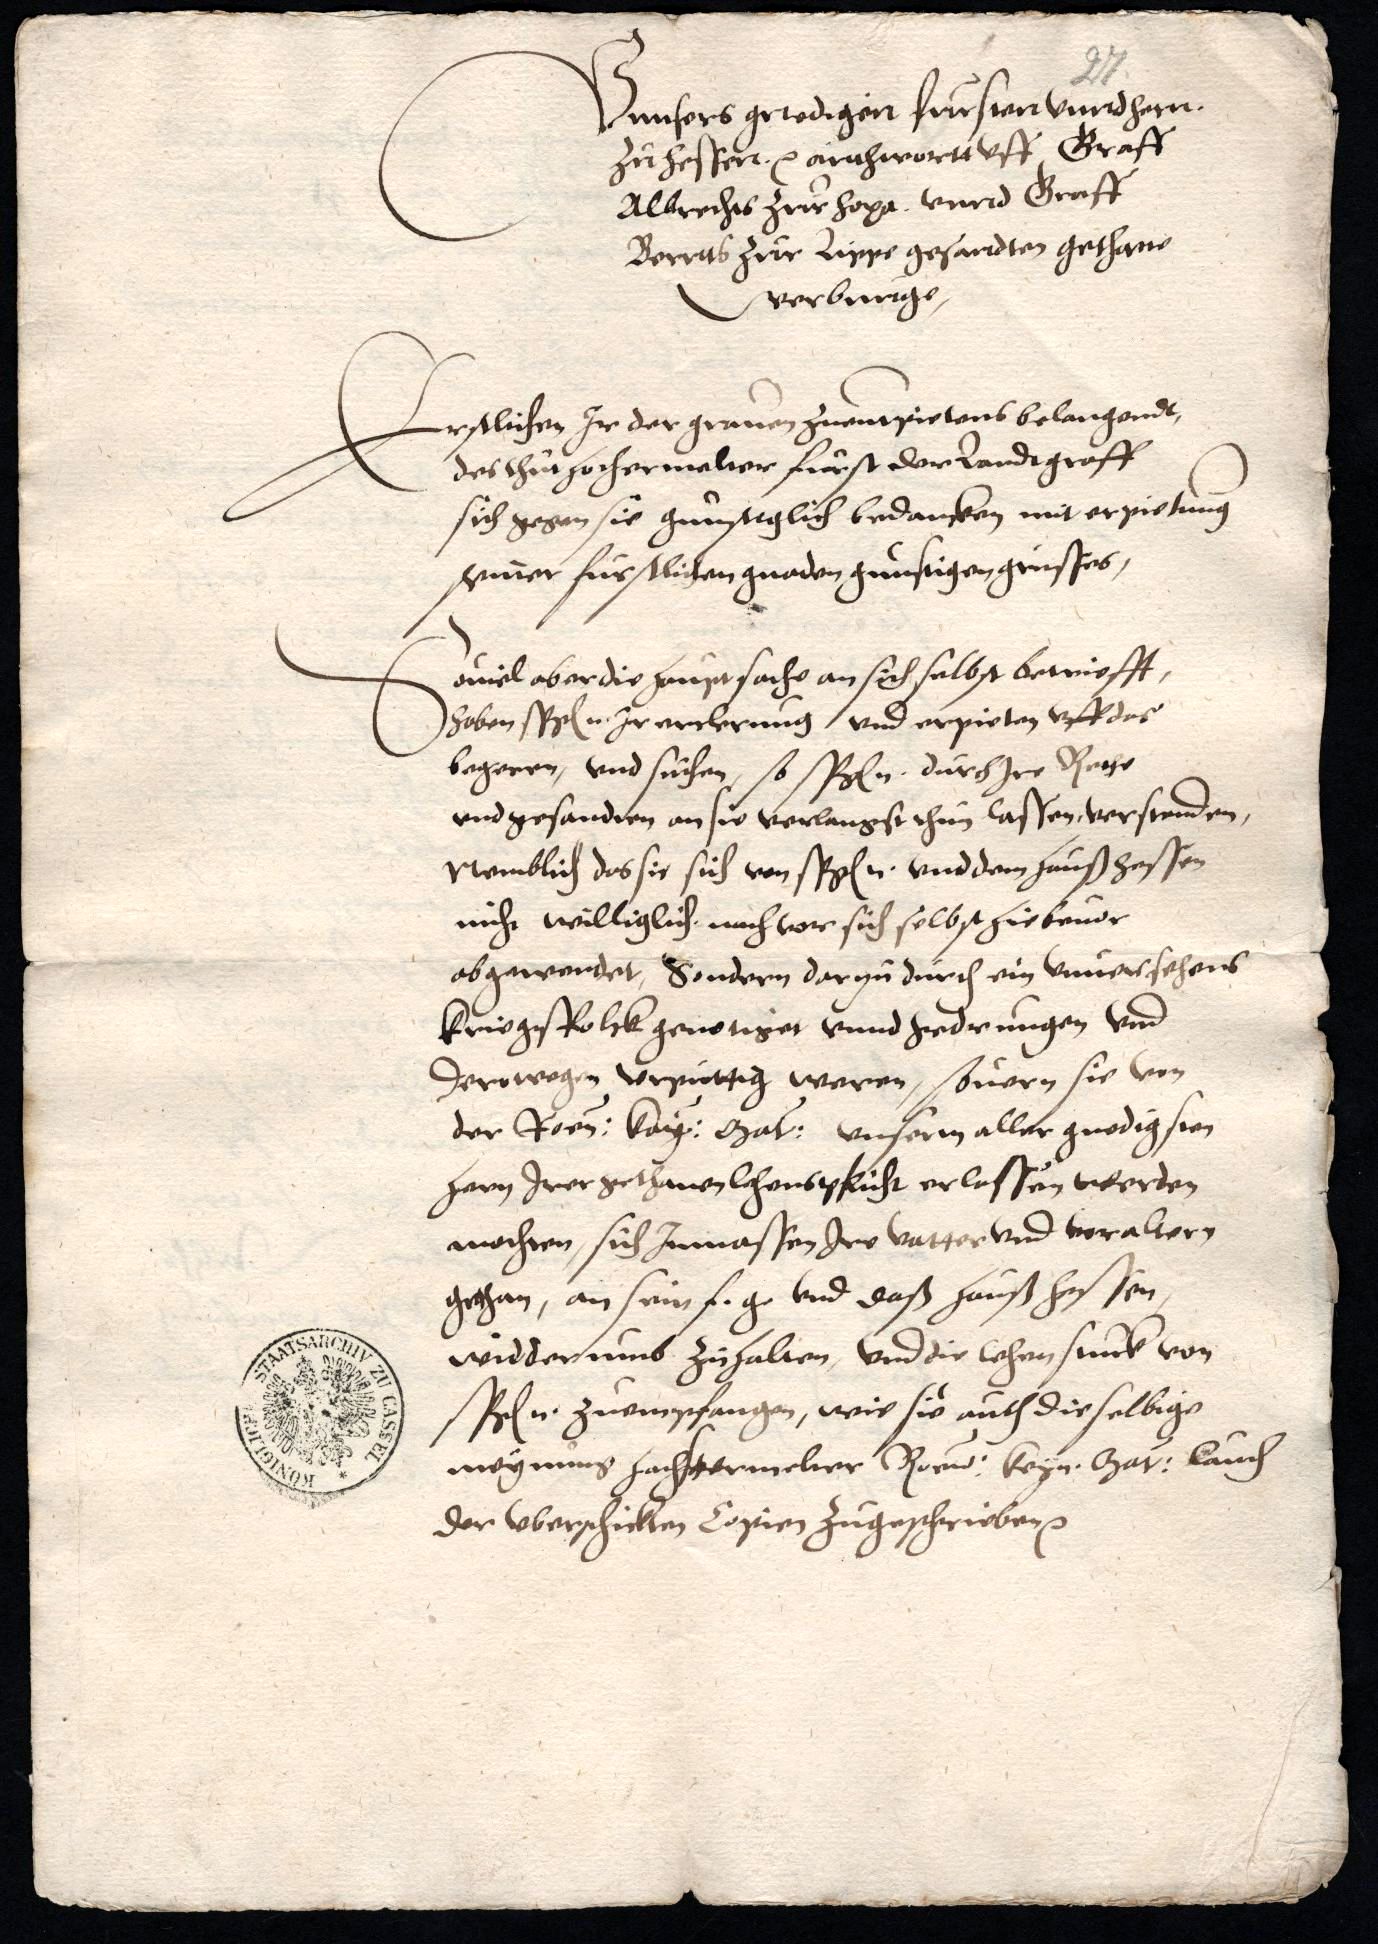 27.
Vnnsers gnedigen fursten vnnd hern
zu hessen. antwortt vff Graff
Albrechts zur hoya. vnnd Graff
Bernts zur Lippe gesandten gethane
werbunge,
Erstlichen Ir der grauen zuentpietens belangendt,
des thut hochermelter furst der Landtgraff
sich gegen sie gunstiglich bedancken mit erpietung
seiner furstlichen gnaden gunstigen grusses,
Souiel aber die haupt sache an sich selbst betriefft,
haben s f g Ir erclerung vnd erpieten vff das
begeren, vnd suchen, so s f g durch Ire Rethe
vnd gesandten an sie verlangst thun lassen, verstanden,
Nemblich das sie sich von s f g vnd dem hauß hessen
nicht williglich. nach vor sich selbst hiebeuor
abgewendet, Sondern dartzu durch ein vnuersehens
kriegsvolck genotiget vnnd gedrungen vnd
derowegen vrpuittig weren, souern sie von
der Roem: kay: Mat: vnserm aller gnedigsten
hern Irer gethanen lehenspflicht erlassen werden
mochten, sich Inmassen Ire vatter vnd voraltern
gethan, an sein f. g. vnd daß hauß hessen,
widderumb zuhalten, vnd die lehen stuck von
s f g zuempfangen, wie sie auch dieselbige
meynung hochstermelter Roem: keyn. Mat: lauth
der vberschickten Copien zugeschrieben
KÖNIGLICH. STAATSARCHIV ZU CASSEL *